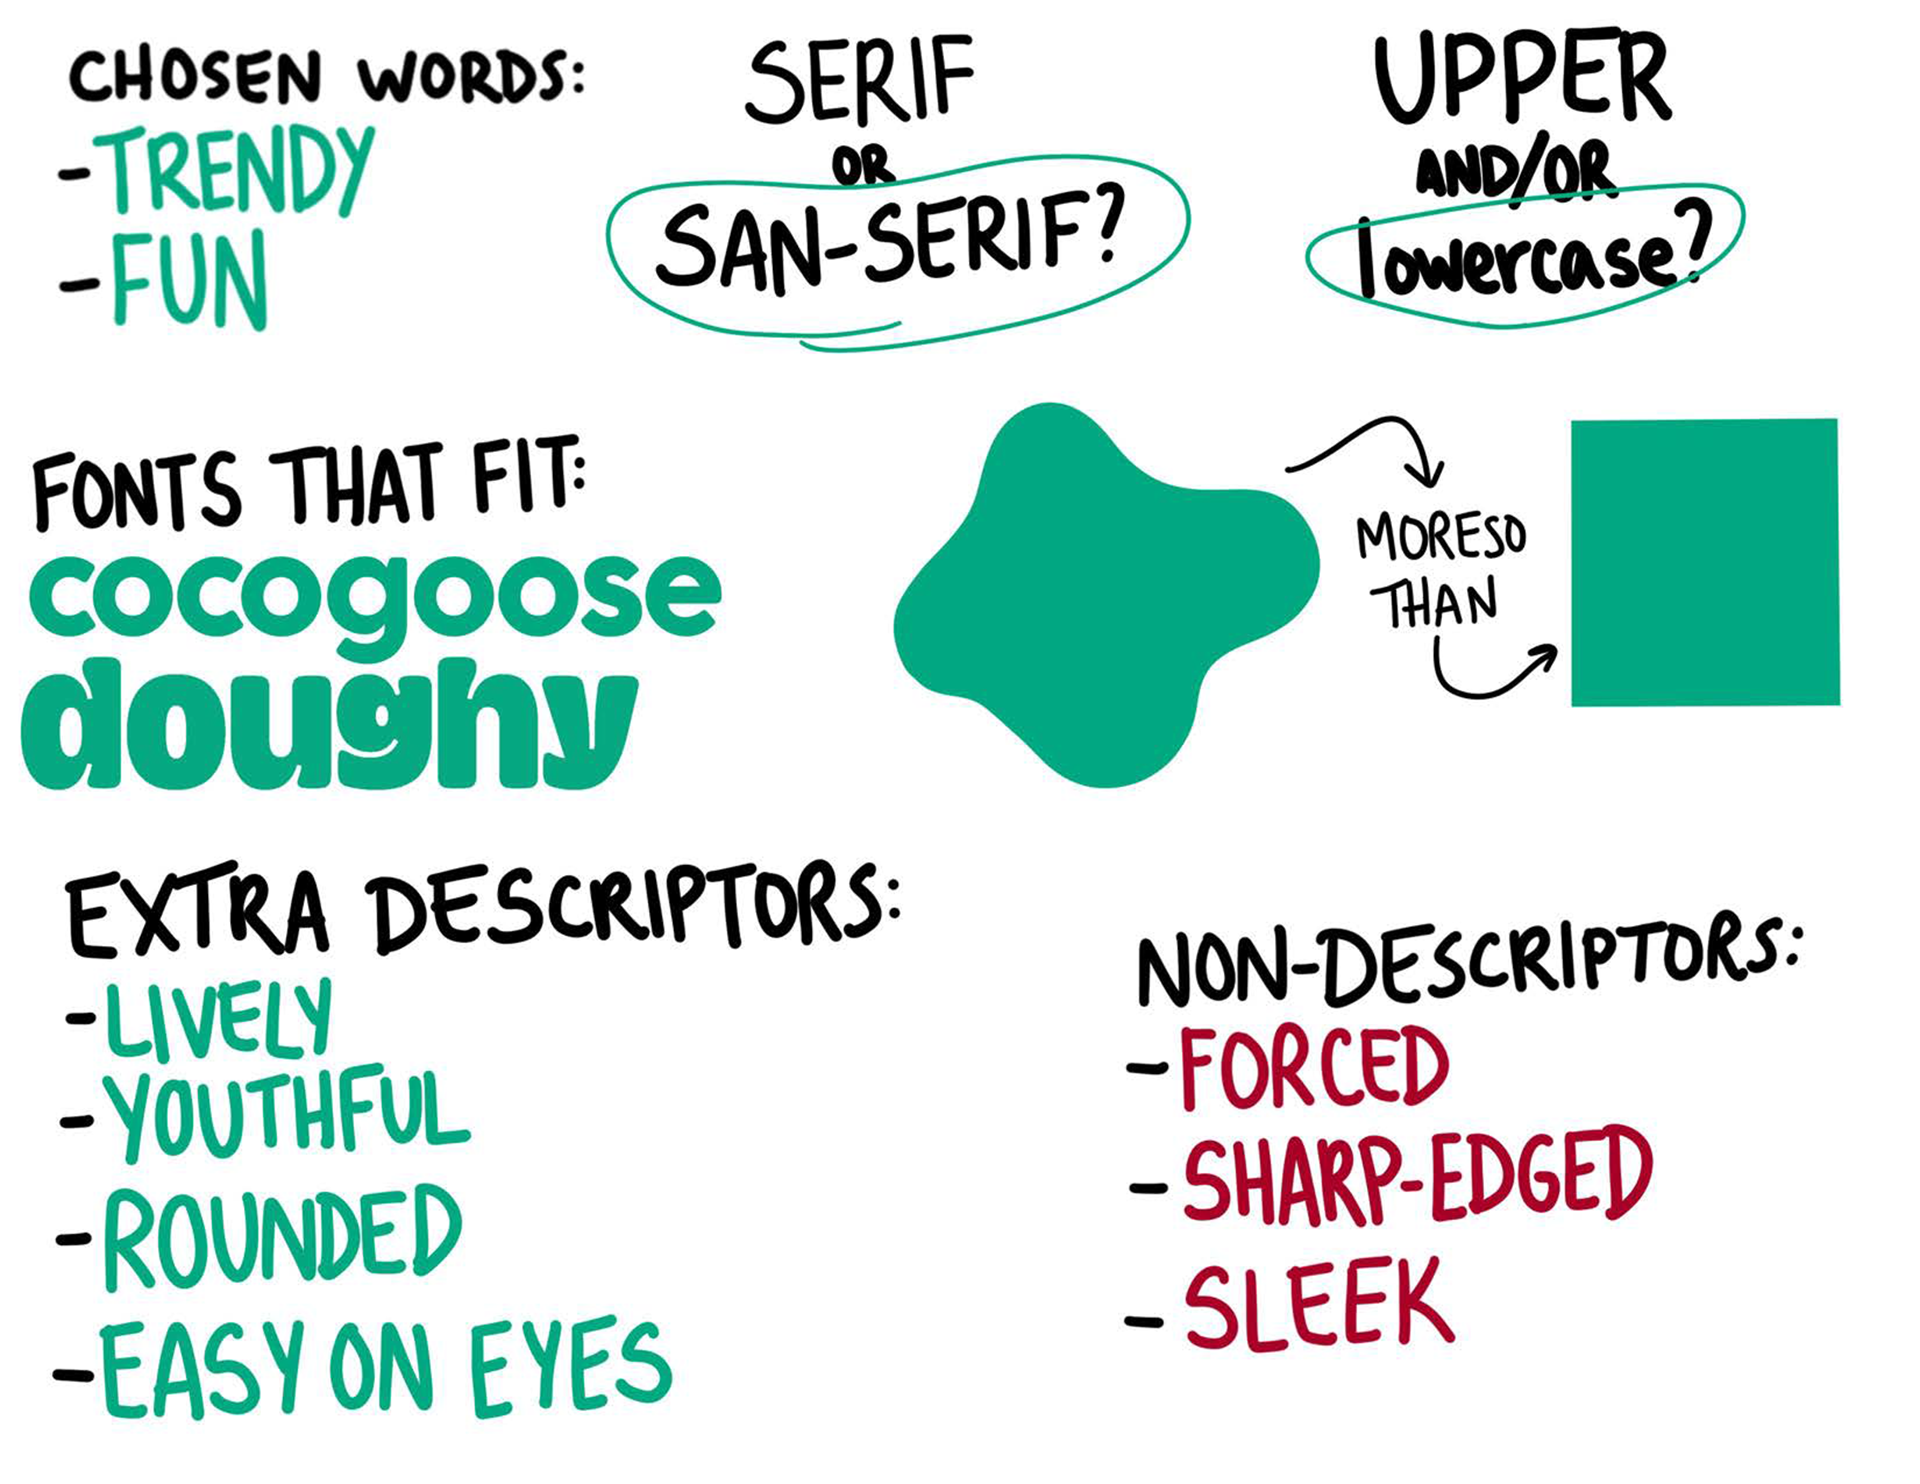 CHOSEN WORDS:
-TRENDY
-FUN
SERIF
OR
SAN-SERIF?
UPPER
AND/OR
lowercase?
FONTS THAT FIT:
cocogoose
doughy
MORESO
THAN
EXTRA DESCRIPTORS:
-LIVELY
-YOUTHFUL
-ROUNDED
-EASY ON EYES
NON-DESCRIPTORS:
-FORCED
-SHARP-EDGED
-SLEEK